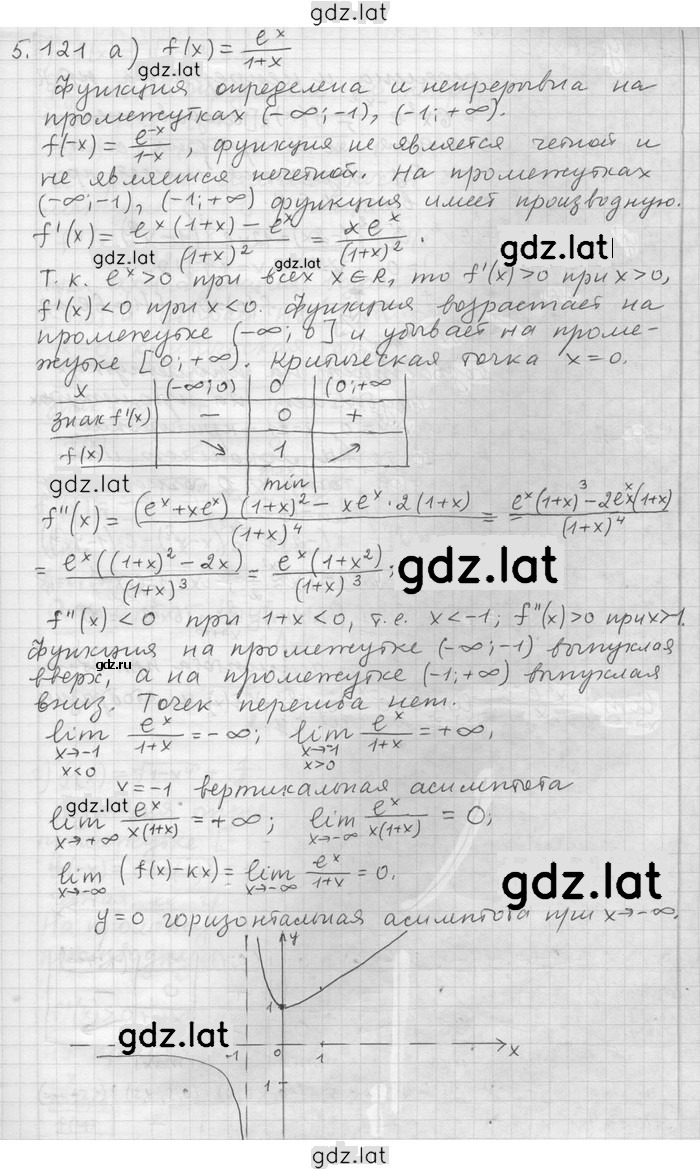 gdz.lat
5.121 а) f(x) = e^x/(1+x)
gdz.lat
Функция определена и непрерывна на
промежутках (-∞;-1), (-1;+∞).
f(-x) = e^-x/(1-x), функция не является четной и
не является нечетной. На промежутках
(-∞;-1), (-1;+∞) функция имеет производную.
f'(x) = (e^x(1+x) - e^x)/(1+x)^2 = xe^x/(1+x)^2.
gdz.lat gdz.lat gdz.lat
Т.к. e^x>0 при всех x∈R, то f'(x)>0 при x>0,
f'(x)<0 при x<0. Функция возрастает на
промежутке (-∞; 0] и убывает на проме-
жутке [0;+∞). Критическая точка x=0.
x (-∞;0) 0 (0;+∞
знак f'(x) - 0 +
f(x) ↘ 1 ↗
gdz.lat min
f''(x) = ((e^x+xe^x)(1+x)^2 - xe^x·2(1+x))/(1+x)^4 = = (e^x(1+x)^3 - 2e^x x(1+x))/(1+x)^4
gdz.lat
= e^x((1+x)^2-2x)/(1+x)^3 = e^x(1+x^2)/(1+x)^3;
gdz.lat
f''(x)<0 при 1+x<0, т.е. x<-1; f''(x)>0 при x>-1.
Функция на промежутке (-∞;-1) выпуклая
gdz.ru
вверх, а на промежутке (-1;+∞) выпуклая
вниз. Точек перегиба нет.
lim x→-1 x<0 e^x/(1+x) = -∞; lim x→-1 x>0 e^x/(1+x) = +∞,
x=-1 вертикальная асимптота
gdz.lat
lim x→+∞ e^x/(x(1+x)) = +∞; lim x→-∞ e^x/(x(1+x)) = 0;
lim x→-∞ (f(x)-кx) = lim x→-∞ e^x/(1+x) = 0.
gdz.lat
y=0 горизонтальная асимптота при x→-∞.
y
1
gdz.lat
-1 0 1 x
1
gdz.lat